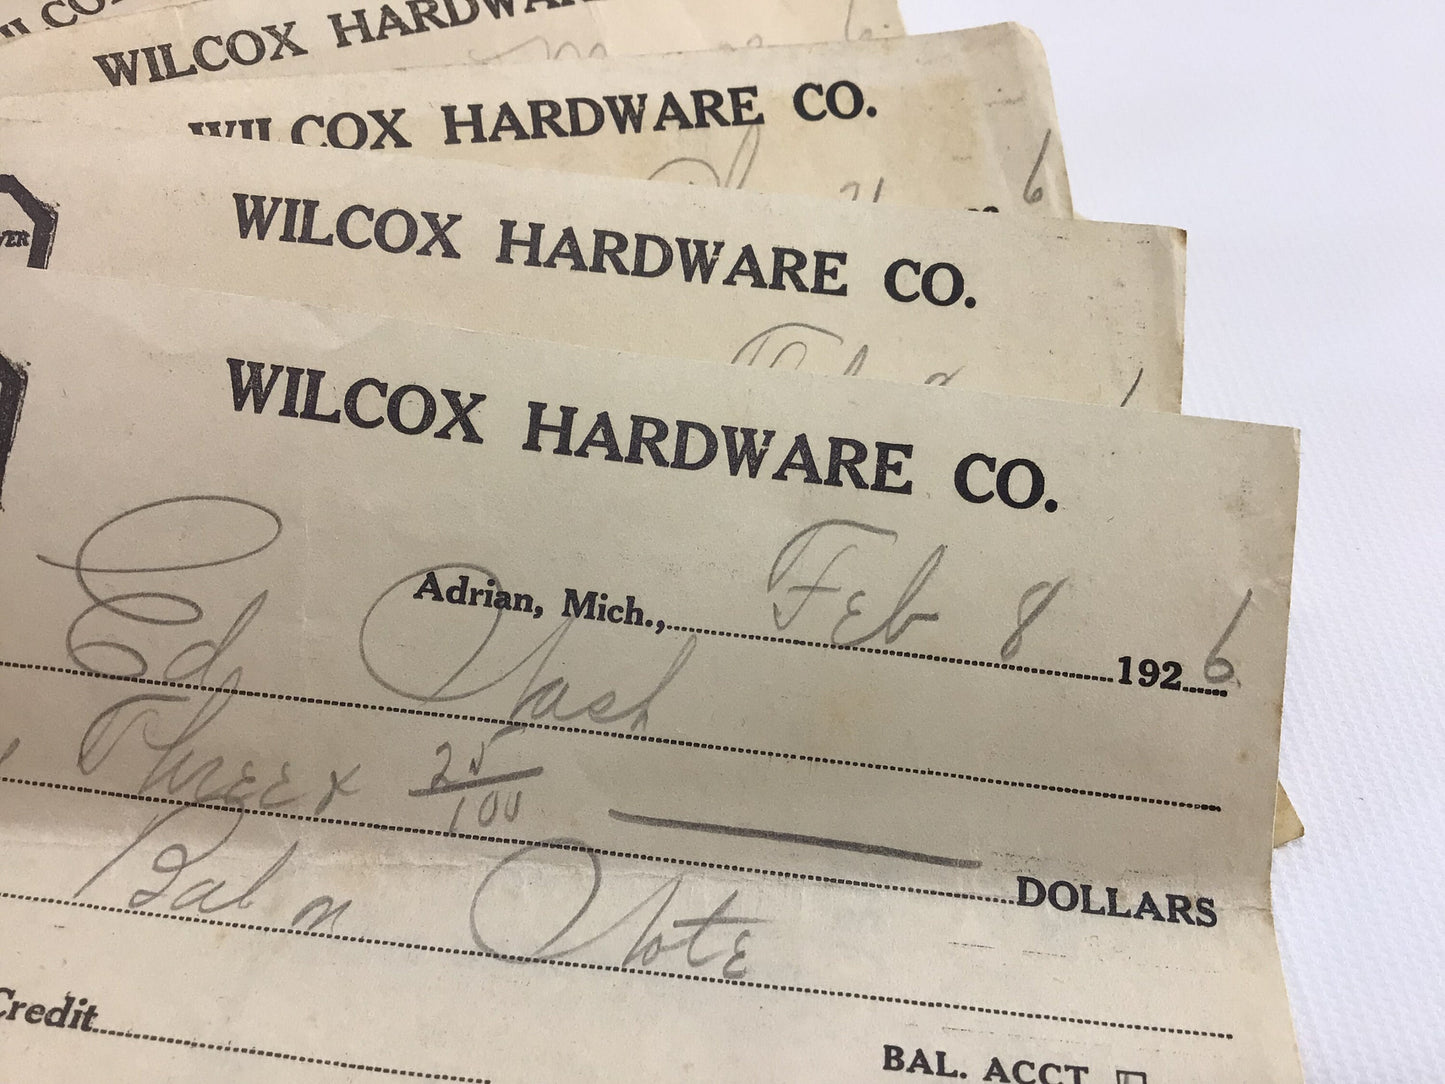 WILCOX HARDWARE
WILCOX HARDWARE CO.
6
WILCOX HARDWARE CO.
Feb 8
WILCOX HARDWARE CO.
Adrian, Mich., Feb 8 1926
Ed Nash
Three & 25/100 DOLLARS
Bal on Note
Credit
BAL. ACCT